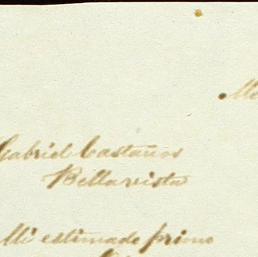 Me
Gabriel Castaños
Bellavista
Mi estimado primo